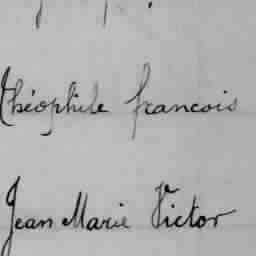 Théophile francois
Jean Marie Victor